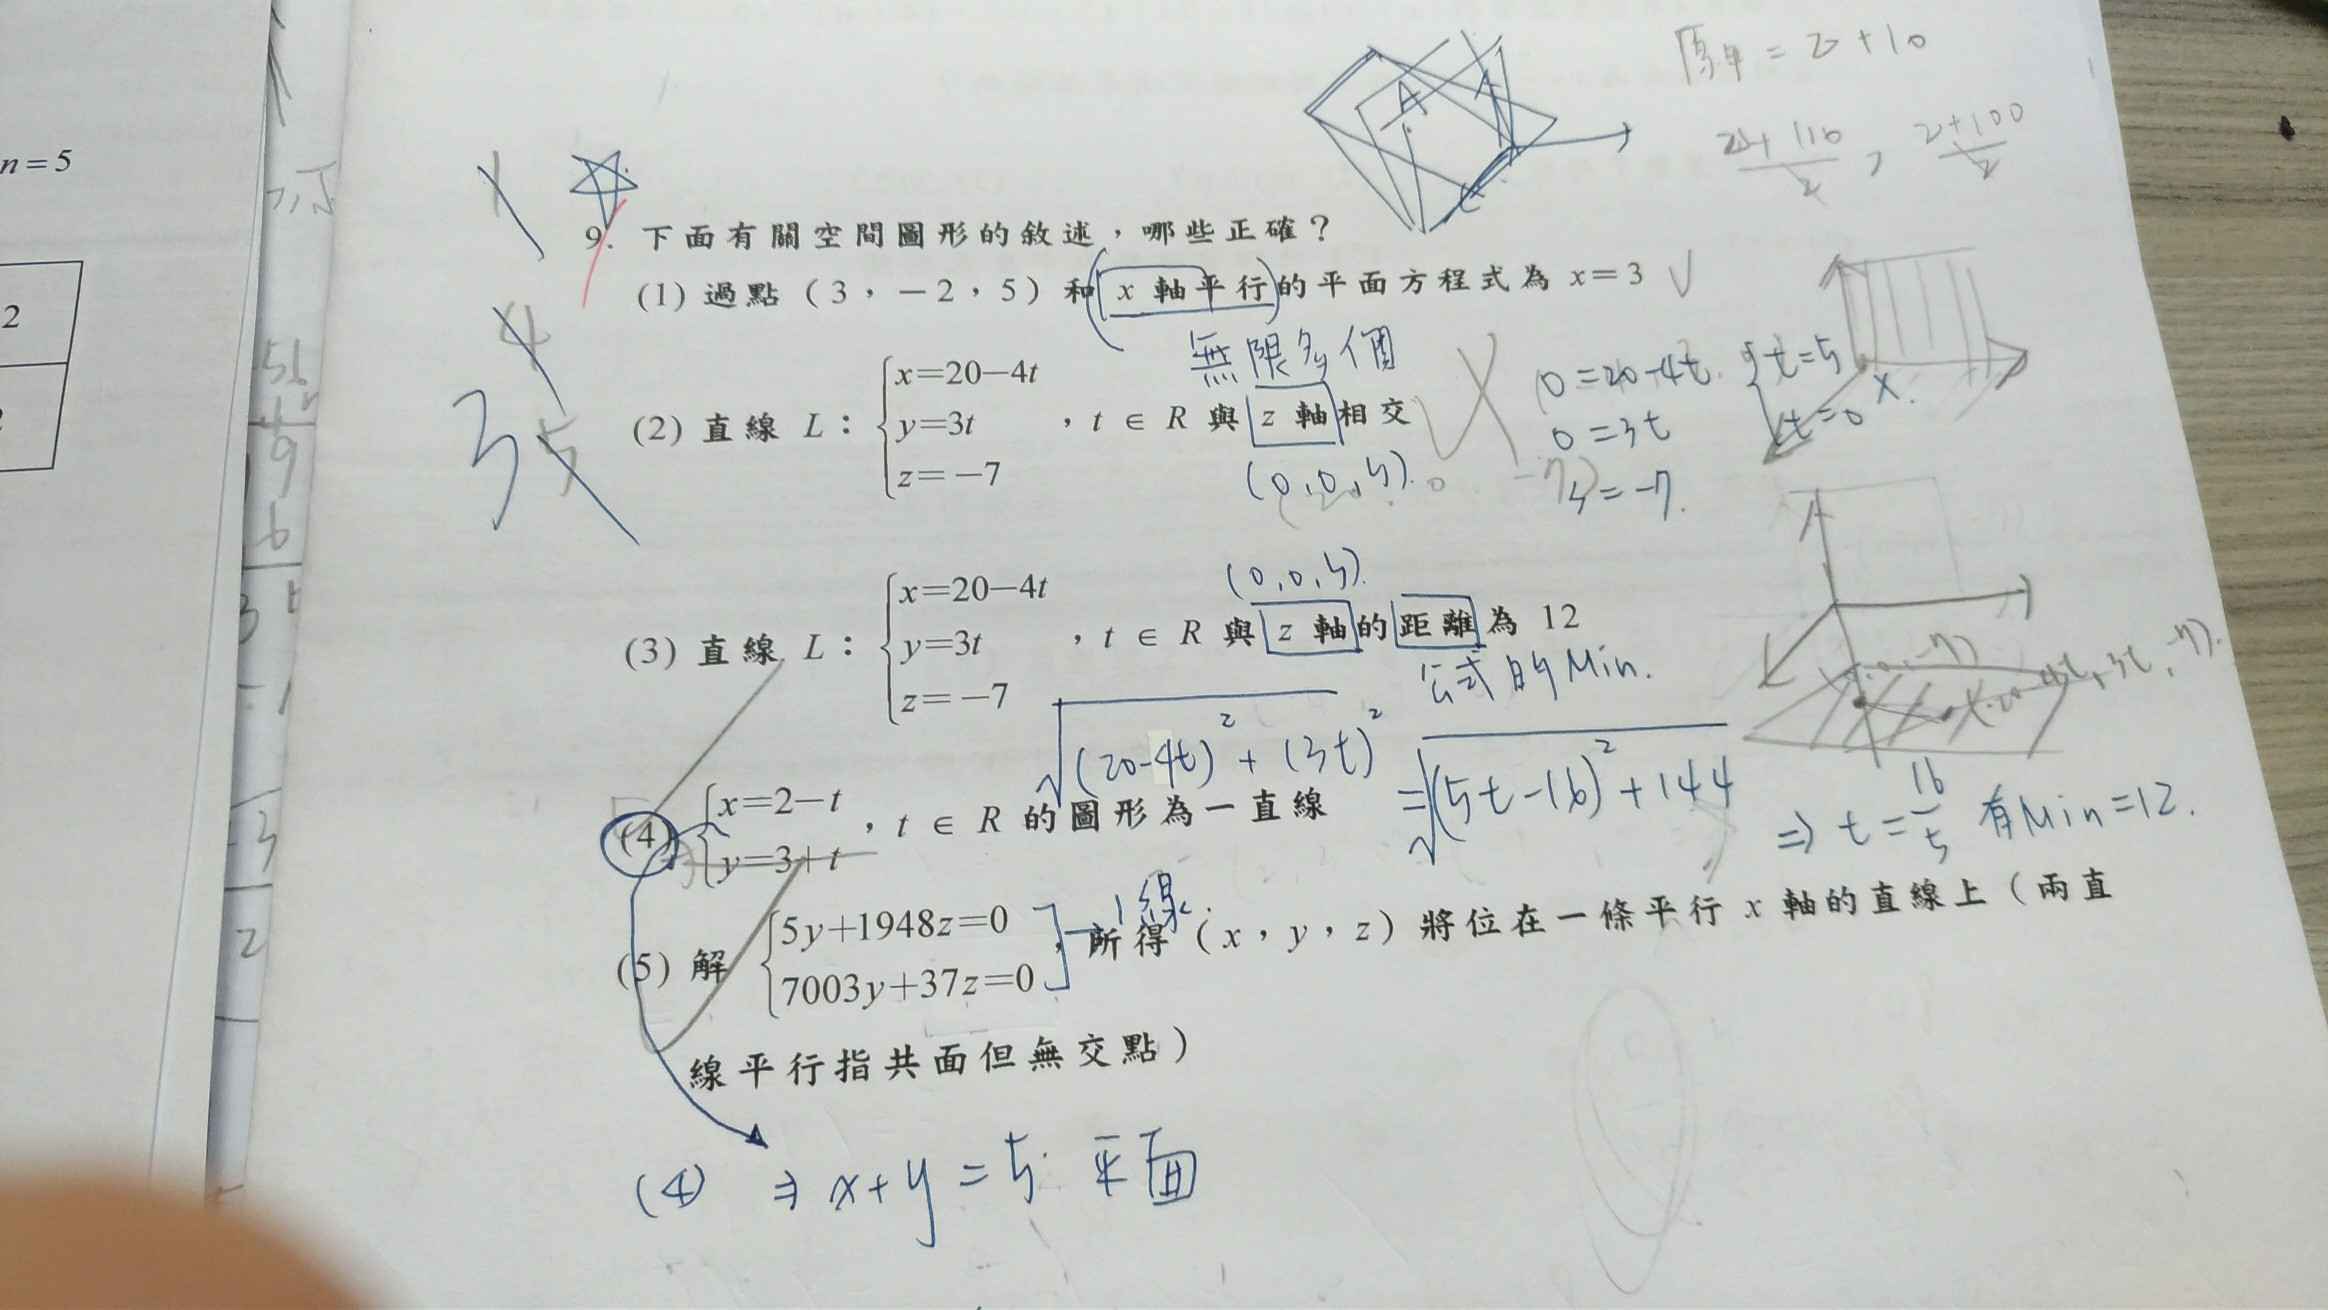 n=5
2
原單 = 2+10
2+100
2
9. 下面有關空間圖形的敘述，哪些正確？
(1) 過點（3，－2，5）和 x 軸平行的平面方程式為 x=3
無限多個
(2) 直線 L：
x=20−4t
y=3t
z=−7
，t ∈ R 與 z 軸相交
(0,0,5).
0=20-4t.
0=3t
5=-7.
t=5
t=0
X.
1
4
3 5
(3) 直線 L：
x=20−4t
y=3t
z=−7
，t ∈ R 與 z 軸的距離為 12
(0,0,5).
公式的Min.
√(20-4t)² + (3t)² = √(5t-16)² + 144
⇒ t = 16/5 有Min=12.
(4)
x=2−t
y=3+t
，t ∈ R 的圖形為一直線
(5) 解
5y+1948z=0
7003y+37z=0
1線.
，所得（x，y，z）將位在一條平行 x 軸的直線上（兩直
線平行指共面但無交點）
(4) ⇒ x+y=5. 平面